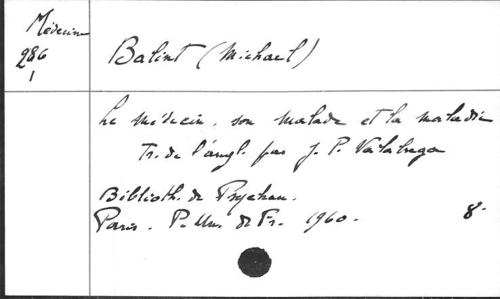 Médecine
286
1
Balint (Michael)
Le médecin, son malade et la maladie
Tr. de l'angl. par J. P. Valabrega
Biblioth. de Psychan.
Paris. P. Un. de Fr. 1960. 8°